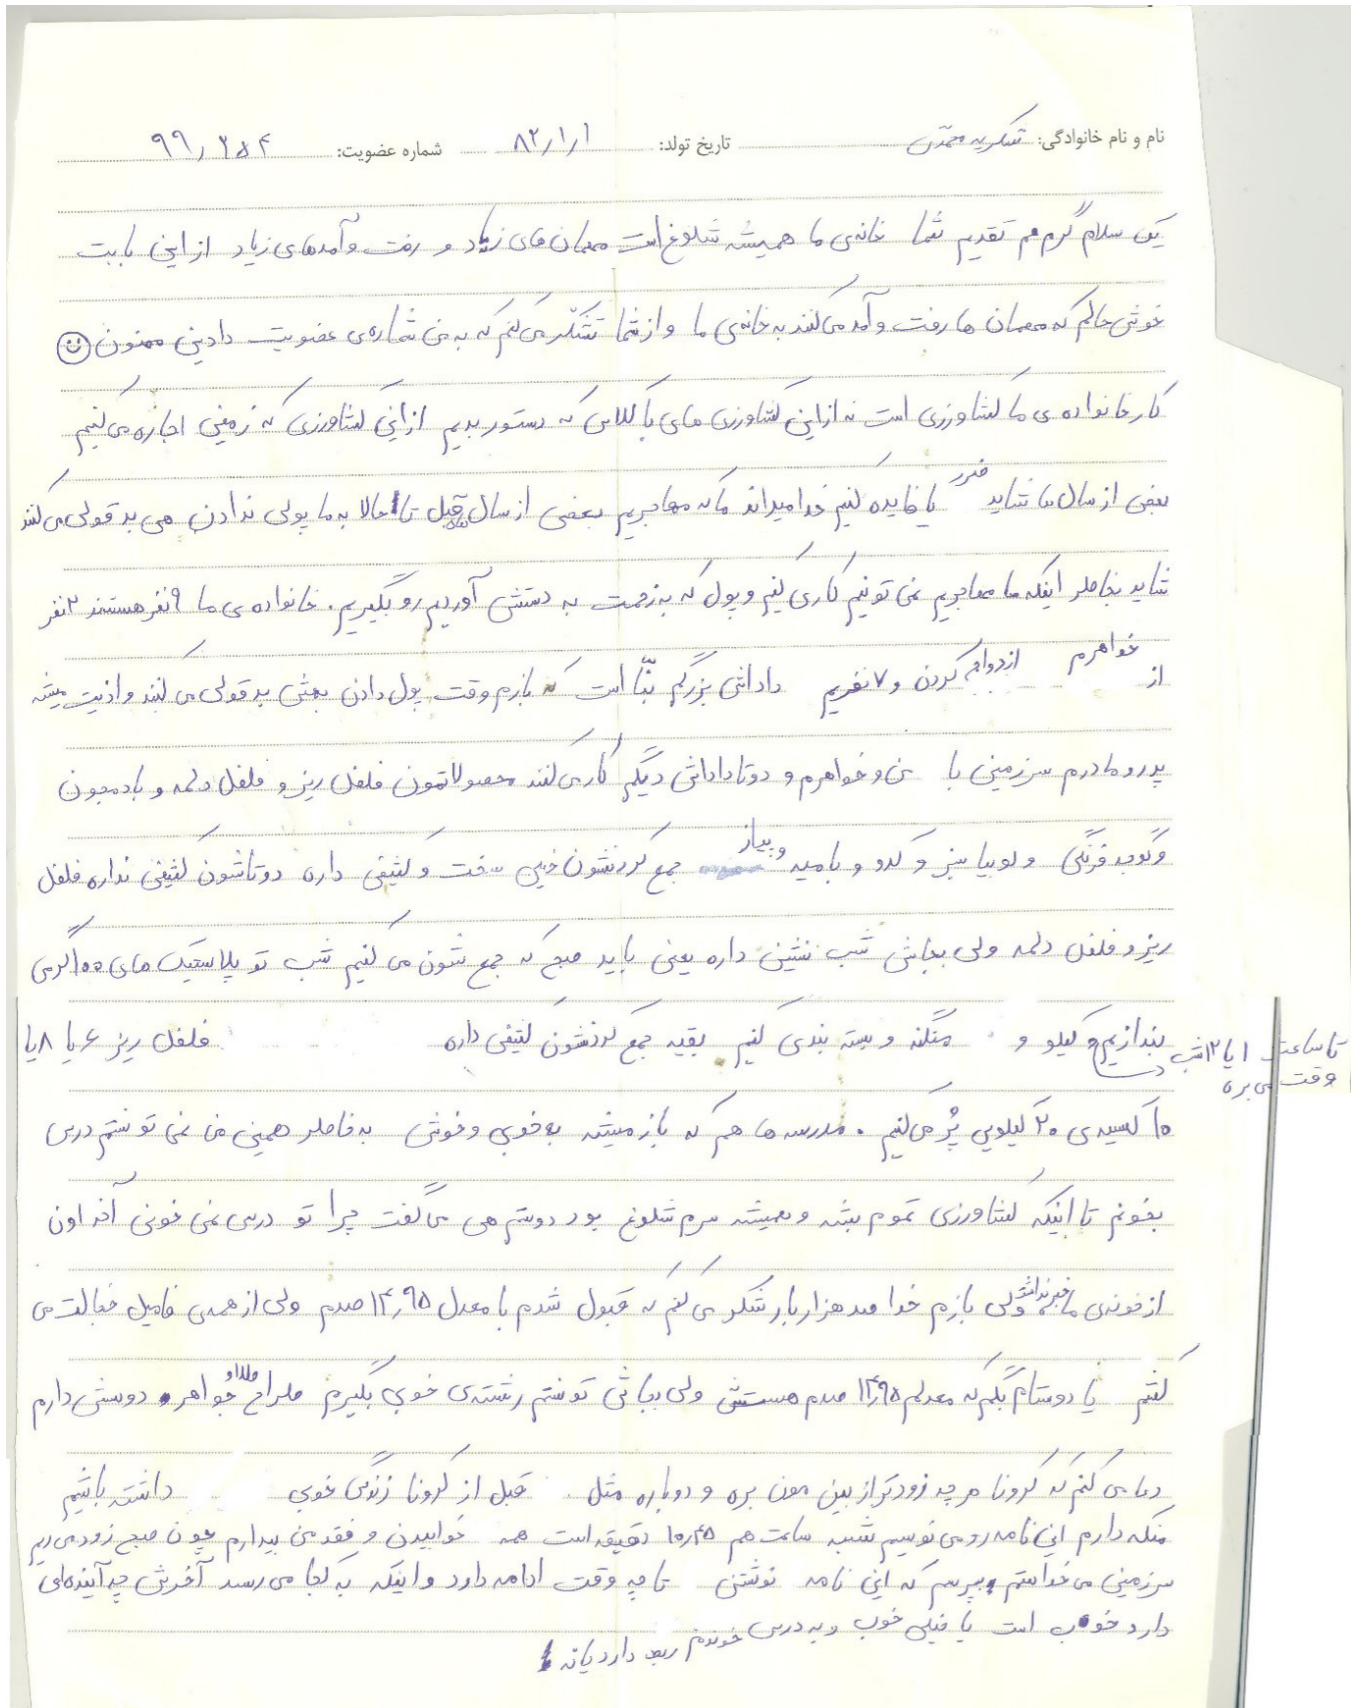 نام و نام خانوادگی: شکریه محمدی تاریخ تولد: ۸۲/۱/۱ شماره عضویت: ۹۹/۲۵۴
یک سلام گرم هم تقدیم شما خانه‌ی ما همیشه شلوغ است مهمان های زیاد و رفت وآمدهای زیاد از این بابت
خوش حالم که مهمان ها رفت وآمد می کنند به خانه‌ی ما و از شما تشکّر می کنم که به من شماره‌ی عضویت دادین ممنون☺
کار خانواده ی ما کشاورزی است نه از این کشاورزی های با کلاس که دستور بدیم از این کشاورزی که زمین اجاره می کنیم
بعضی از سال ها شاید ضرر یا فایده کنیم خدا میداند ما که مهاجریم بعضی از سال قبل تا حالا به ما پولی ندادن هی بد قولی می کنند
شاید بخاطر اینکه ما مهاجریم نمی تونیم کاری کنیم و پول که به زحمت به دستش آوردیم رو بگیریم. خانواده ی ما ۹ نفر هستند ۲ نفر
از خواهرم ازدواج کردن و ۷ نفریم داداش بزرگم بنّا است که بازم وقت پول دادن بهش بد قولی می کنند و اذیت میشه
پدر و مادرم سرزمین با من و خواهرم و دوتا داداش دیگم کار می کنند محصولاتمون فلفل ریز و فلفل دلمه و بادمجون
و گوجه فرنگی و لوبیا سبز و کدو و بامیه و پیاز جمع کردنشون خیلی سخت و کثیفی داره دوتاشون کثیفی نداره فلفل
ریز و فلفل دلمه ولی بجاش شب نشینی داره یعنی باید صبح که جمع شون می کنیم شب تو پلاستیک های ۱۰۰ گرمی
بندازیم و کیلو و منگنه و بسته بندی کنیم بقیه جمع کردنشون کثیفی داره فلفل ریز ۶ یا ۸ یا
تا ساعت ۱ یا ۲ شب
وقت می بره
۱۰ کیسه‌ی ۲۰ کیلویی پُر می کنیم. مدرسه ها هم که باز میشه به خوبی و خوشی به خاطر همین من نمی تونستم درس
بخونم تا اینکه کشاورزی تموم بشه و همیشه سرم شلوغ بود دوستم هی می گفت چرا تو درس نمی خونی آخه اون
از خونه‌ی ما خبر نداشت ولی بازم خدا صد هزار بار شکر می کنم که قبول شدم با معدل ۱۴٫۹۵ صدم ولی از همه‌ی فامیل خجالت می
کشم یا دوستام بگم که معدلم ۱۴٫۹۵ صدم هستش ولی بجاش تونستم رشته‌ی خوبی بگیرم طراح طلا و جواهر دوستش دارم
دعا می کنم که کرونا هر چه زودتر از بین مون بره و دوباره مثل قبل از کرونا زندگی خوبی داشته باشیم
منکه دارم این نامه رو می نویسم شب ساعت هم ۱۰٫۴۵ دقیقه است همه خوابیدن و فقط من بیدارم چون صبح زود می ریم
سرزمین می خواستم بپرسم که این نامه نوشتن تا چه وقت ادامه دارد و اینکه به کجا می رسد آخرش چه آینده‌ای
دارد خوب است یا خیلی خوب و به درس خوندنم ربط دارد یا نه